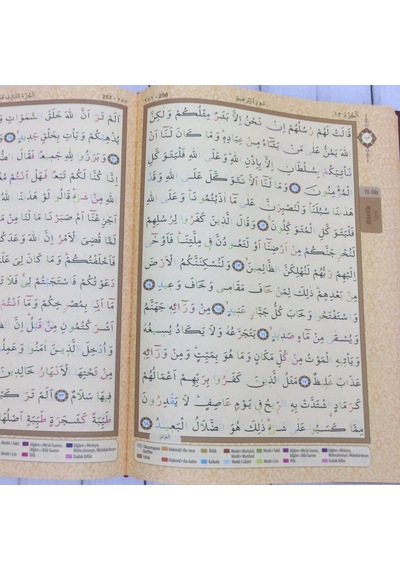 الجزء ١٣
سورة ابراهيم
256 - ٢٥٦
قَالَتْ لَهُمْ رُسُلُهُمْ اِنْ نَحْنُ اِلَّا بَشَرٌ مِثْلُكُمْ وَلٰكِنَّ
اللّٰهَ يَمُنُّ عَلٰى مَنْ يَشَٓاءُ مِنْ عِبَادِهٖ وَمَا كَانَ لَنَٓا اَنْ
نَأْتِيَكُمْ بِسُلْطَانٍ اِلَّا بِاِذْنِ اللّٰهِ وَعَلَى اللّٰهِ فَلْيَتَوَكَّلِ
الْمُؤْمِنُونَ ١١ وَمَا لَنَٓا اَلَّا نَتَوَكَّلَ عَلَى اللّٰهِ وَقَدْ
هَدٰينَا سُبُلَنَا وَلَنَصْبِرَنَّ عَلٰى مَٓا اٰذَيْتُمُونَا وَعَلَى اللّٰهِ
فَلْيَتَوَكَّلِ الْمُتَوَكِّلُونَ ١٢ وَقَالَ الَّذٖينَ كَفَرُوا لِرُسُلِهِمْ
لَنُخْرِجَنَّكُمْ مِنْ اَرْضِنَٓا اَوْ لَتَعُودُنَّ فٖي مِلَّتِنَا فَاَوْحٰٓى
اِلَيْهِمْ رَبُّهُمْ لَنُهْلِكَنَّ الظَّالِمٖينَ ١٣ وَلَنُسْكِنَنَّكُمُ الْاَرْضَ
مِنْ بَعْدِهِمْ ذٰلِكَ لِمَنْ خَافَ مَقَامٖي وَخَافَ وَعٖيدِ ١٤
وَاسْتَفْتَحُوا وَخَابَ كُلُّ جَبَّارٍ عَنٖيدٍ ١٥ مِنْ وَرَٓائِهٖ جَهَنَّمُ
وَيُسْقٰى مِنْ مَٓاءٍ صَدٖيدٍ ١٦ يَتَجَرَّعُهُ وَلَا يَكَادُ يُسٖيغُهُ
وَيَأْتٖيهِ الْمَوْتُ مِنْ كُلِّ مَكَانٍ وَمَا هُوَ بِمَيِّتٍ وَمِنْ وَرَٓائِهٖ
عَذَابٌ غَلٖيظٌ ١٧ مَثَلُ الَّذٖينَ كَفَرُوا بِرَبِّهِمْ اَعْمَالُهُمْ
كَرَمَادٍ اشْتَدَّتْ بِهِ الرّٖيحُ فٖي يَوْمٍ عَاصِفٍ لَا يَقْدِرُونَ
مِمَّا كَسَبُوا عَلٰى شَيْءٍ ذٰلِكَ هُوَ الضَّلَالُ الْبَعٖيدُ ١٨
13. Cüz
257 - ٢٥٧
اَلَمْ تَرَ اَنَّ اللّٰهَ خَلَقَ السَّمٰوَاتِ
يُذْهِبْكُمْ وَيَأْتِ بِخَلْقٍ جَدٖيدٍ ١٩
وَبَرَزُوا لِلّٰهِ جَمٖيعًا فَقَالَ
اِنَّا كُنَّا لَكُمْ تَبَعًا فَهَلْ
مِنْ شَيْءٍ قَالُوا لَوْ هَدٰينَا
اَجَزِعْنَٓا اَمْ صَبَرْنَا مَا لَنَا
لَمَّا قُضِيَ الْاَمْرُ اِنَّ اللّٰهَ وَعَدَكُمْ
فَاَخْلَفْتُكُمْ وَمَا كَانَ لِيَ
دَعَوْتُكُمْ فَاسْتَجَبْتُمْ لٖي فَلَا
مَٓا اَنَا بِمُصْرِخِكُمْ وَمَٓا اَنْتُمْ
اَشْرَكْتُمُونِ مِنْ قَبْلُ اِنَّ
وَاُدْخِلَ الَّذٖينَ اٰمَنُوا وَعَمِلُوا
مِنْ تَحْتِهَا الْاَنْهَارُ
فٖيهَا سَلَامٌ ٢٣ اَلَمْ تَرَ
طَيِّبَةً كَشَجَرَةٍ طَيِّبَةٍ اَصْلُهَا